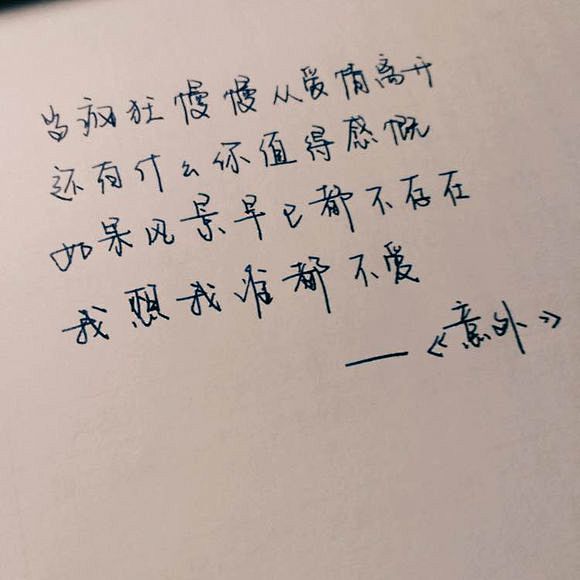 当疯狂慢慢从爱情离开
还有什么你值得感慨
如果风景早已都不存在
我想我谁都不爱
——《意外》